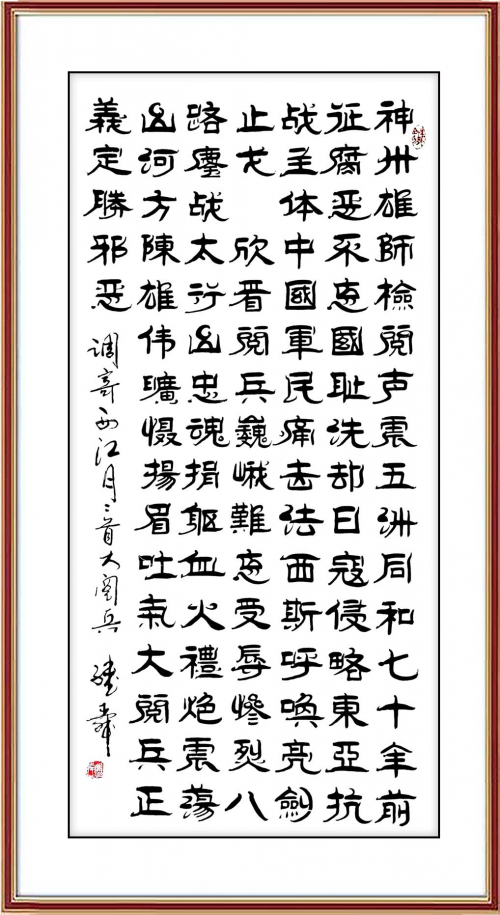 神州雄師檢閱声震五洲同和七十年前
征腐恶不忘國耻洗却日寇侵略東亞抗
战主体中國軍民痛击法西斯呼喚亮劍
止戈 欣看閱兵巍峨難忘受辱慘烈八
路鏖战太行山忠魂捐躯血火禮炮震蕩
山河方陳雄伟曠慑揚眉吐氣大閱兵正
義定勝邪恶
调寄西江月二首大阅兵